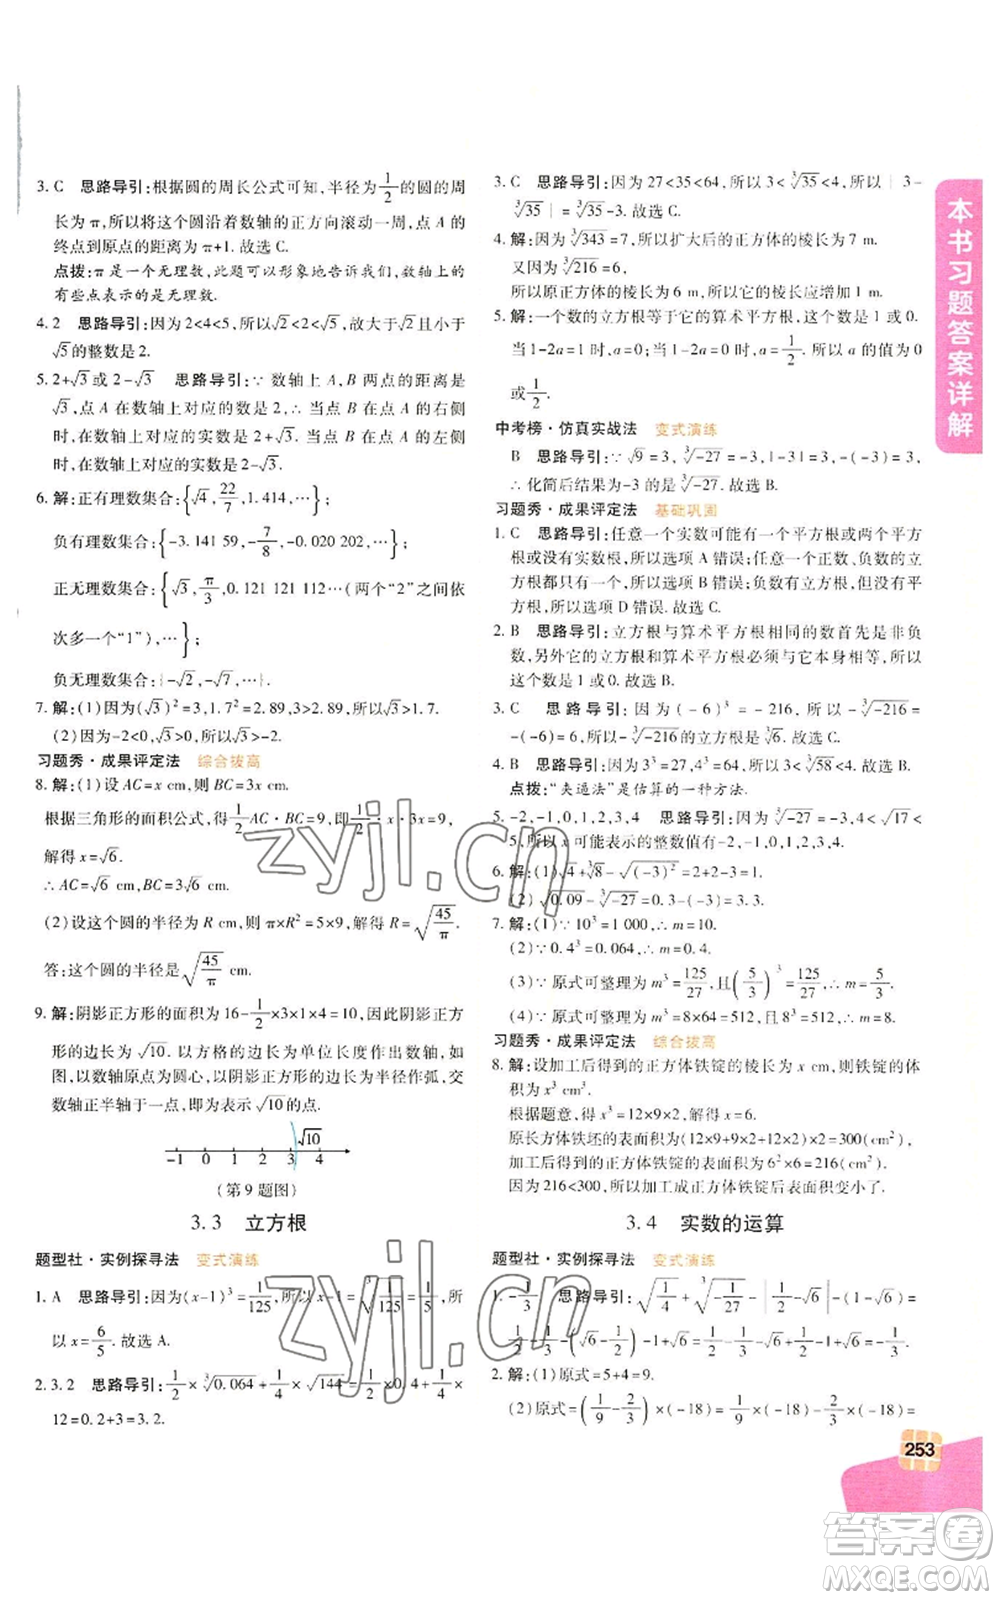 3. C 思路导引:根据圆的周长公式可知,半径为1/2的圆的周
长为 π,所以将这个圆沿着数轴的正方向滚动一周,点 A 的
终点到原点的距离为 π+1. 故选 C.
点拨:π 是一个无理数,此题可以形象地告诉我们,数轴上的
有些点表示的是无理数.
4. 2 思路导引:因为 2<4<5,所以√2<2<√5,故大于√2且小于
√5的整数是 2.
5. 2+√3或 2-√3 思路导引:∵ 数轴上 A,B 两点的距离是
√3,点 A 在数轴上对应的数是 2,∴ 当点 B 在点 A 的右侧
时,在数轴上对应的实数是 2+√3;当点 B 在点 A 的左侧
时,在数轴上对应的实数是 2-√3.
6. 解:正有理数集合:{√4,22/7,1.414,…};
负有理数集合:{-3.141 59,-7/8,-0.020 202,…};
正无理数集合:{√3,π/3,0.121 121 112…(两个“2”之间依
次多一个“1”),…};
负无理数集合:{-√2,-√7,…}.
7. 解:(1)因为(√3)²=3,1.7²=2.89,3>2.89,所以√3>1.7.
(2)因为-2<0,√3>0,所以√3>-2.
习题秀·成果评定法 综合拔高
8. 解:(1)设 AC=x cm,则 BC=3x cm.
根据三角形的面积公式,得1/2AC·BC=9,即1/2·x·3x=9,
解得 x=√6.
∴ AC=√6 cm,BC=3√6 cm.
(2)设这个圆的半径为 R cm,则 π×R²=5×9,解得 R=√(45/π).
答:这个圆的半径是√(45/π) cm.
9. 解:阴影正方形的面积为 16-1/2×3×1×4=10,阴影正方
形的边长为√10. 以方格的边长为单位长度作出数轴,如
图,以数轴原点为圆心,以阴影正方形边长为半径作弧,交
数轴正半轴于一点,即为表示√10的点.
√10
-1 0 1 2 3 4
(第 9 题图)
3.3 立方根
题型社·实例探寻法 变式演练
1. A 思路导引:因为(x-1)³=1/125,所以 x-1=∛(1/125)=1/5,所
以 x=6/5. 故选 A.
2. 3.2 思路导引:1/2×∛0.064+1/2×√144=1/2×0.4+1/2×
12=0.2+3=3.2.
3. C 思路导引:因为 27<35<64,所以 3<∛35<4,所以| 3-
∛35 |=∛35-3. 故选 C.
4. 解:因为∛343=7,所以扩大后的正方体的棱长为 7 m.
又因为∛216=6,
所以原正方体的棱长为 6 m,所以它的棱长应增加 1 m.
5. 解:一个数的立方根等于它的算术平方根,这个数是 1 或 0.
当 1-2a=1 时,a=0;当 1-2a=0 时,a=1/2. 所以 a 的值为 0
或1/2.
中考榜·仿真实战法 变式演练
B 思路导引:∵ √9=3,∛-27=-3,|-3|=3,-(-3)=3,
∴ 化简后结果为-3 的是∛-27. 故选 B.
习题秀·成果评定法 基础巩固
1. C 思路导引:任意一个实数可能有一个平方根或两个平方根
或没有实数根,所以选项 A 错误;任意一个正数、负数的立方
根都只有一个,所以选项 B 错误;负数有立方根,但没有平方
根,所以选项 D 错误. 故选 C.
2. B 思路导引:立方根与算术平方根相同的数首先是非负
数,另外它的立方根和算术平方根必须与它本身相同,所以
这个数是 1 或 0. 故选 B.
3. C 思路导引:因为(-6)³=-216,所以-∛-216=
-(-6)=6. 故选 C.
4. B 思路导引:因为 3³=27,4³=64,所以 3<∛58<4. 故选 B.
点拨:“夹逼法”是估算的一种方法.
5. -2,-1,0,1,2,3,4 思路导引:∵ ∛-27=-3,4<√17<
5,所以 x 可能表示的整数值有-2,-1,0,1,2,3,4.
6. 解:(1)√4+∛8-√(-3)²=2+2-3=1.
(2)√0.09-∛-27=0.3-(-3)=3.3.
7. 解:(1)∵ 10³=1 000,∴ m=10.
(2)∵ 0.4³=0.064,∴ m=0.4.
(3)∵ 原式可整理为 m³=125/27,且(5/3)³=125/27,∴ m=5/3.
(4)∵ 原式可整理为 m³=8×64=512,8³=512,∴ m=8.
习题秀·成果评定法 综合拔高
8. 解:设加工后得到的正方体铁锭的棱长为 x cm,则铁锭的体
积为 x³ cm³.
根据题意,得 x³=12×9×2. 解得 x=6.
原长方体铁坯的表面积为(12×9+9×2+12×2)×2=300(cm²),
加工后得到的正方体铁锭的表面积为 6²×6=216(cm²),
因为 216<300,所以加工成正方体铁锭后表面积变小了.
3.4 实数的运算
题型社·实例探寻法 变式演练
1. -1/3 思路导引:√(1/4)+∛(-1/27)-|1/2-√6|-(1-√6)=
1/2-1/3-(√6-1/2)-1+√6=1/2-1/3-√6+1/2-1+√6=-1/3.
2. 解:(1)原式=5+4=9.
(2)原式=(1/9-2/3)×(-18)=1/9×(-18)-2/3×(-18)=
本书习题答案详解
253
zyjl.cn
zyjl.cn
答案卷
MXQE.COM